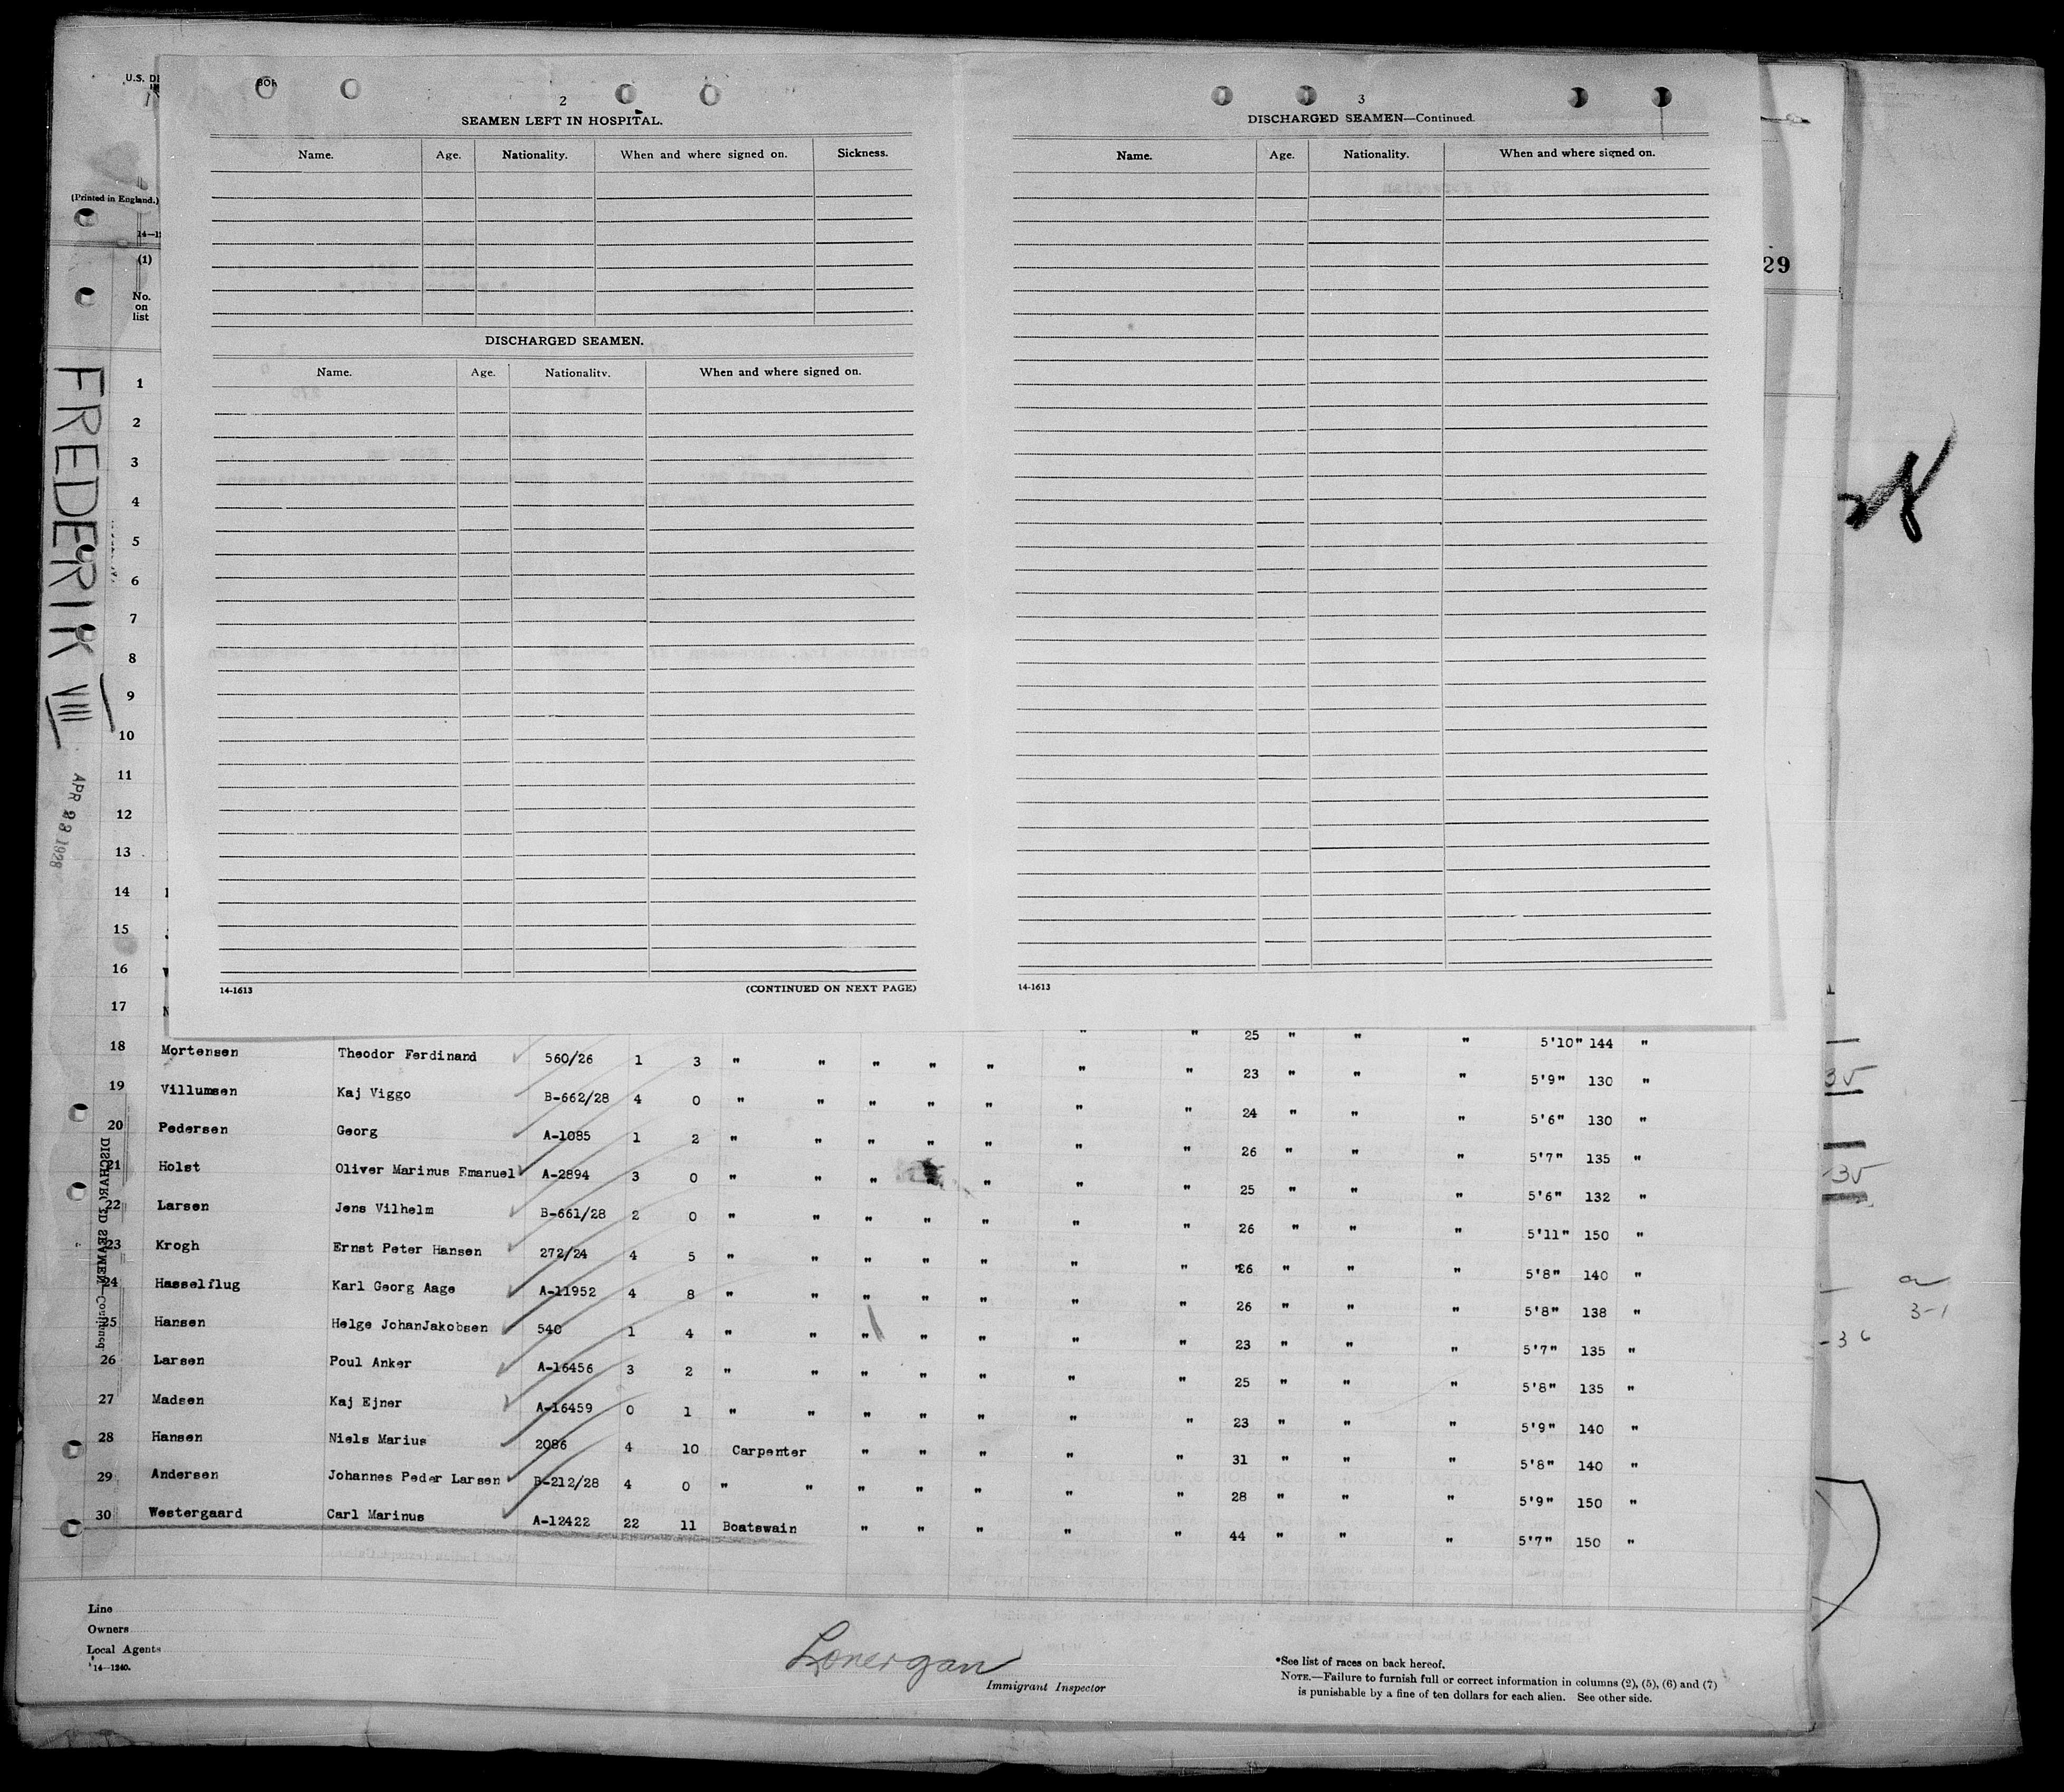 U.S. DE
(Printed in England.)
14—12
(1)
No.
on
list
FREDERIK VIII
APR 23 1928
29
2
SEAMEN LEFT IN HOSPITAL.
Name. Age. Nationality. When and where signed on. Sickness.
DISCHARGED SEAMEN.
Name. Age. Nationality. When and where signed on.
14-1613 (CONTINUED ON NEXT PAGE)
3
DISCHARGED SEAMEN—Continued.
Name. Age. Nationality. When and where signed on.
14-1613
1
2
3
4
5
6
7
8
9
10
11
12
13
14
15
16
17 " " 25 " " " 5'10" 144 "
18 Mortensen Theodor Ferdinand 560/26 1 3 " " " " " " " 23 " " " 5'9" 130 "
19 Villumsen Kaj Viggo B-662/28 4 0 " " " " " " " 24 " " " 5'6" 130 "
20 Pedersen Georg A-1085 1 2 " " " " " " " 26 " " " 5'7" 135 "
21 Holst Oliver Marinus Emanuel A-2894 3 0 " " " " " " " 25 " " " 5'6" 132 "
22 Larsen Jens Vilhelm B-661/28 2 0 " " " " " " " 26 " " " 5'11" 150 "
23 Krogh Ernst Peter Hansen 272/24 4 5 " " " " " " " 26 " " " 5'8" 140 "
24 Hasselflug Karl Georg Aage A-11952 4 8 " " " " " " " 26 " " " 5'8" 138 "
25 Hansen Helge JohanJakobsen 540 1 4 " " " " " " " 23 " " " 5'7" 135 "
26 Larsen Poul Anker A-16456 3 2 " " " " " " " 25 " " " 5'8" 135 "
27 Madsen Kaj Ejner A-16459 0 1 " " " " " " " 23 " " " 5'9" 140 "
28 Hansen Niels Marius 2086 4 10 Carpenter " " " " " 31 " " " 5'8" 140 "
29 Andersen Johannes Peder Larsen B-212/28 4 0 " " " " " " " 28 " " " 5'9" 150 "
30 Westergaard Carl Marinus A-12422 22 11 Boatswain " " " " " 44 " " " 5'7" 150 "
DISCHARGED SEAMEN—Continued
35
-35
-36
3-1
Line
Owners
Local Agents
14—1240.
Lonergan
Immigrant Inspector
*See list of races on back hereof.
NOTE.—Failure to furnish full or correct information in columns (2), (5), (6) and (7)
is punishable by a fine of ten dollars for each alien. See other side.